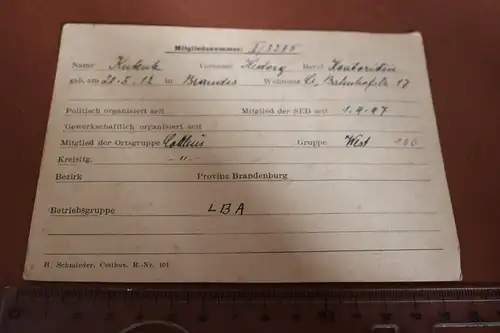 Mitgliedsnummer: XI/3285
Name Kukuk Vorname Hedwig Beruf Kontoristin
geb. am 20.5.12 in Brandes Wohnung Ct, Bahnhofstr 17
Politisch organisiert seit Mitglied der SED seit 1.4.47
Gewerkschaftlich organisiert seit
Mitglied der Ortsgruppe Cottbus Gruppe West 106
Kreisltg. -"-
Bezirk Provinz Brandenburg
Betriebsgruppe LBA
H. Schmieder, Cottbus. R.-Nr. 101